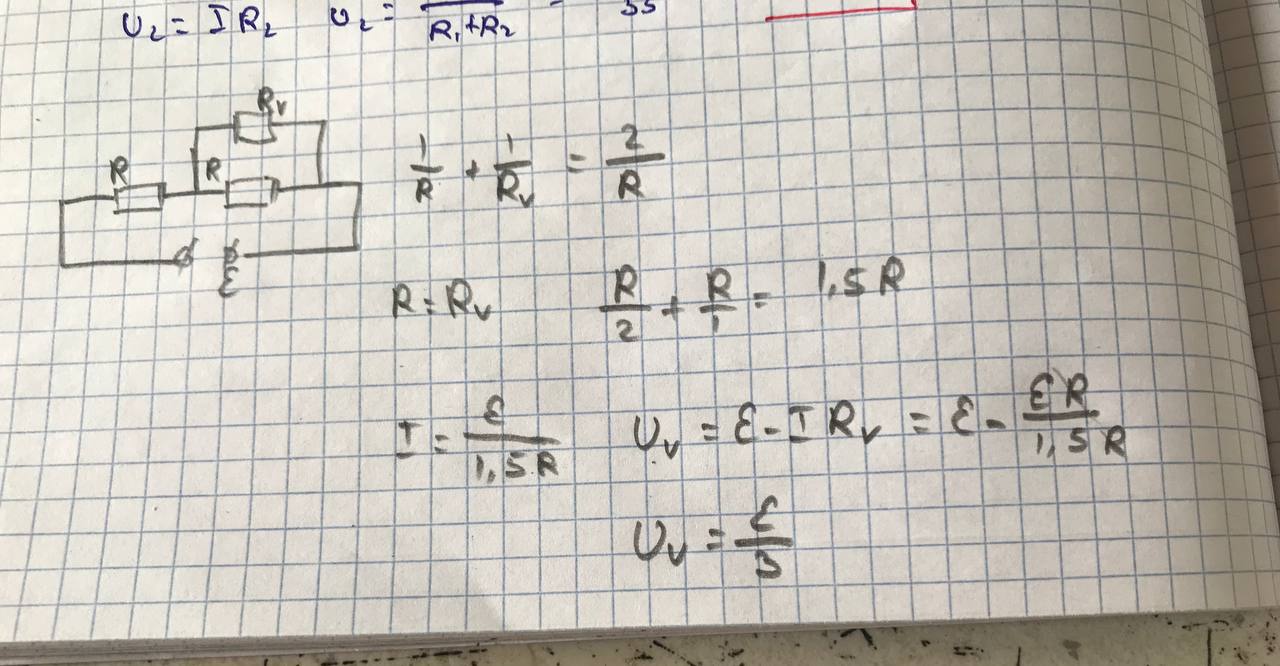 U₂ = I R₂ U₂ = ─── R₁+R₂ = 55
R_V
R R
ε
1/R + 1/R_V = 2/R
R = R_V R/2 + R/1 = 1,5 R
I = ε/1,5 R U_V = ε - I R_V = ε - εR/1,5 R
U_V = ε/3